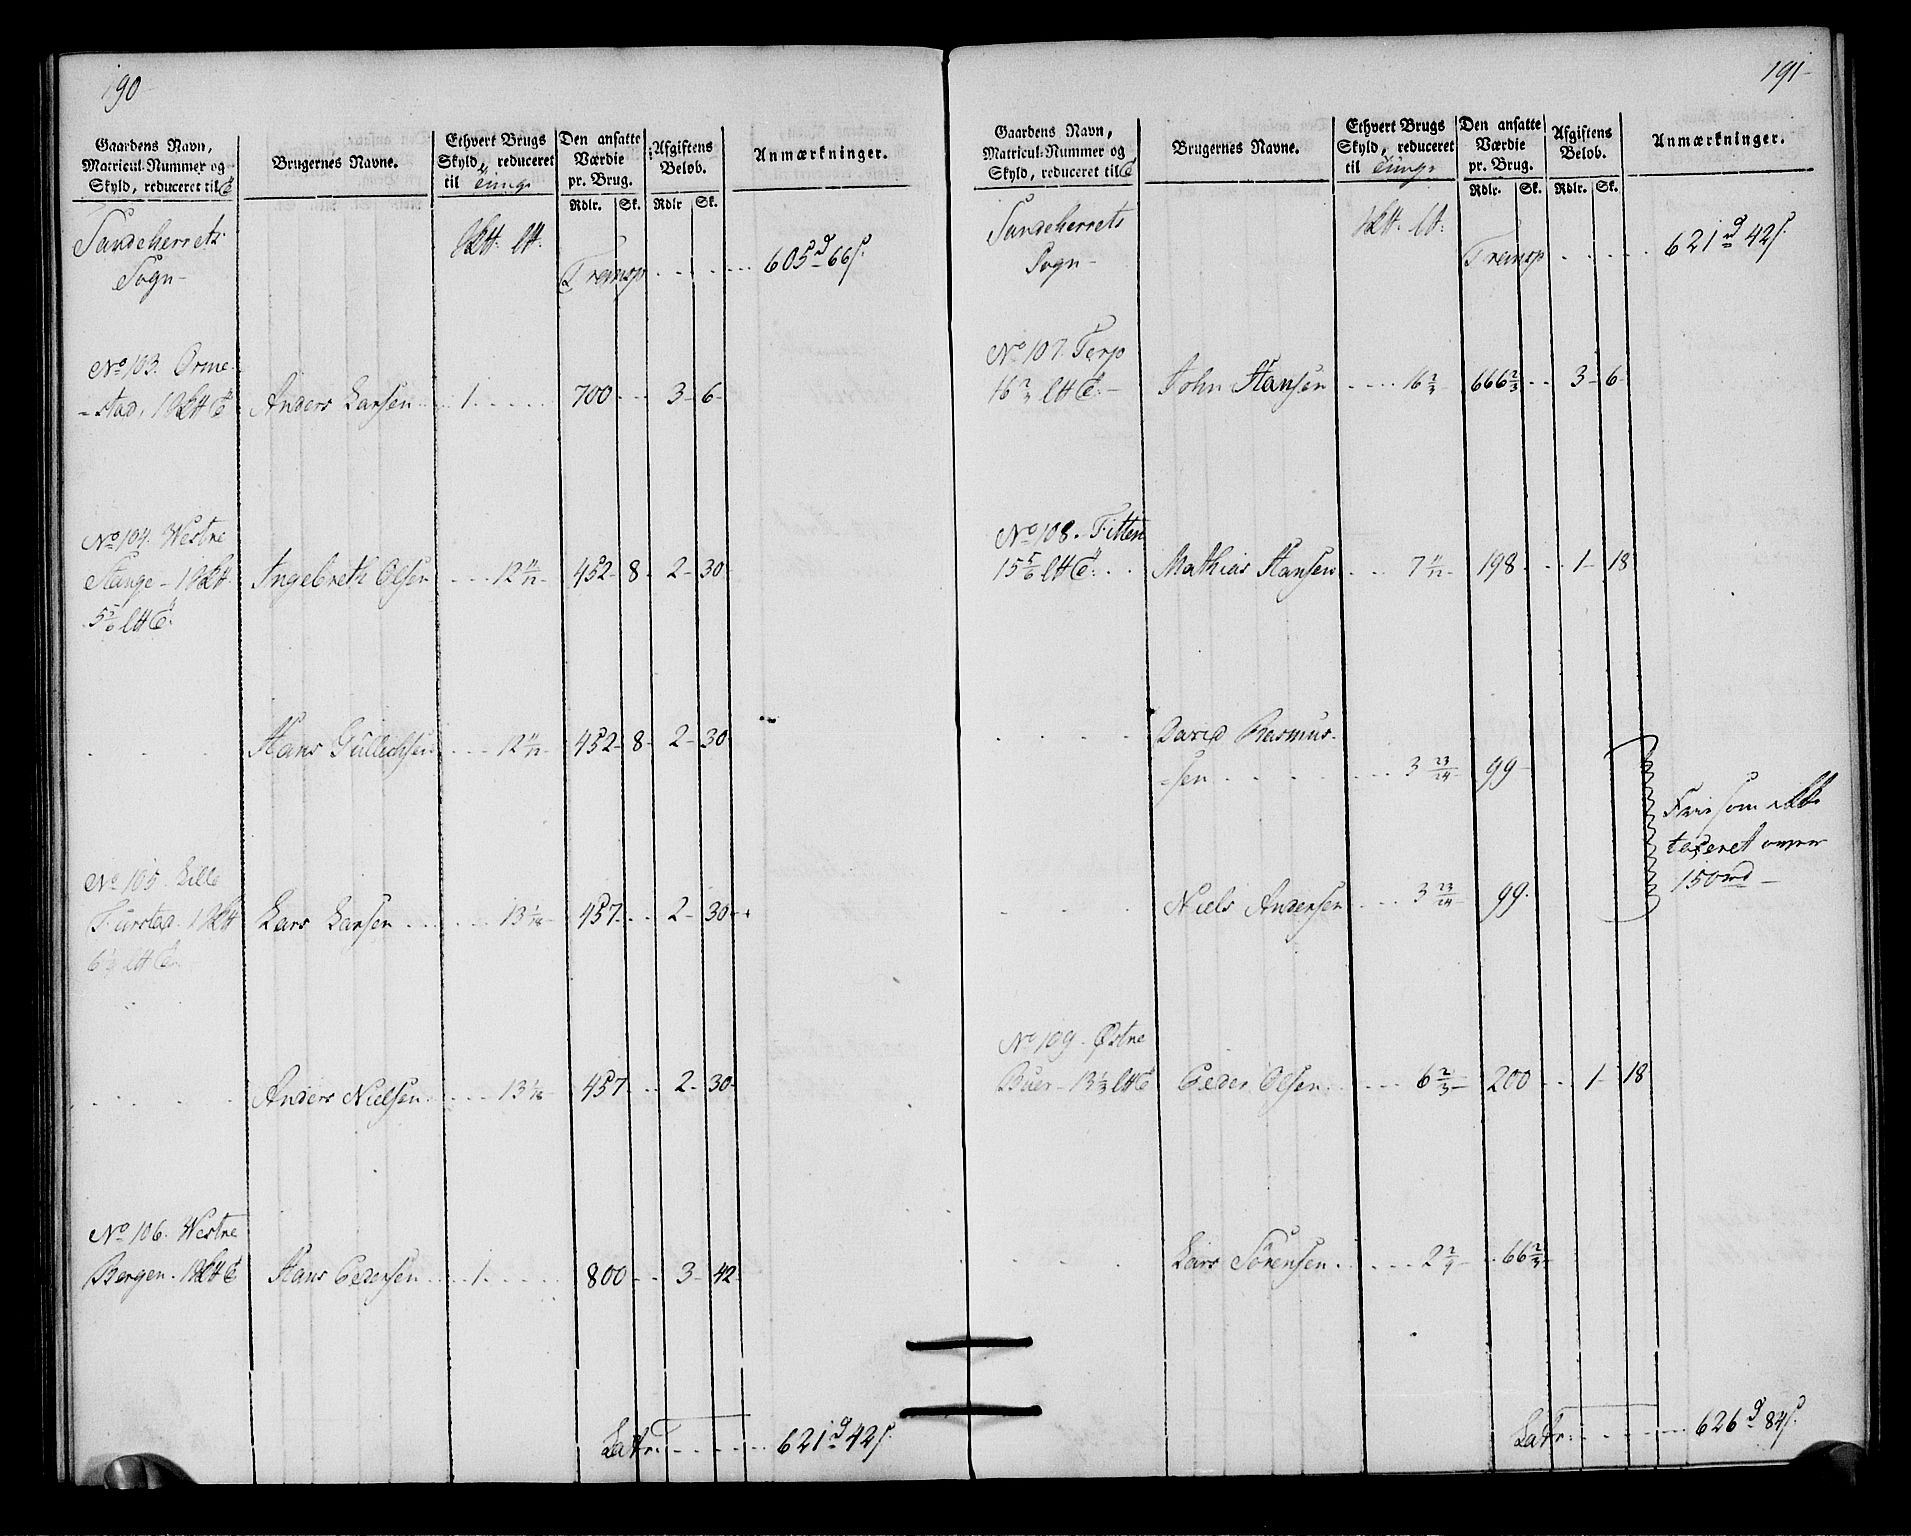 190
Gaardens Navn,
Matricul-Nummer og
Skyld, reduceret til
Brugernes Navne.
Ethvert Brugs
Skyld, reduceret
til Tunge
Den ansatte
Værdie
pr. Brug.
Afgiftens
Beløb.
Anmærkninger.
Rdlr. Sk. Rdlr Sk.
Sandeherrets
Sogn
Transp . . . . . 605 d 66 s.
No 103. Orme-
-stad, 1 Anders Larsen 1 . . . . 700 . . . 3 - 6 -
No 104. Westre
Stange - 1 Ingebreth Olsen . . . 12 11/12 452 - 8 - 2 - 30
5 5/6
Hans Gullichsen . . . 12 11/12 452 - 8 - 2 - 30
No 105. Lille
Furstad. 1 Lars Larsen . . . . 13 1/18 457 . . . 2 - 30
6 1/9
Anders Nielsen . . . 13 1/18 457 . . 2 - 30 -
No 106. Westre
Bergen. 1 Hans Pedersen . . . 1 . . . . 800 . . 3 - 42
Latr: . . . . . 621 d 42 s.
191
Gaardens Navn,
Matricul-Nummer og
Skyld, reduceret til
Brugernes Navne.
Ethvert Brugs
Skyld, reduceret
til Tunge
Den ansatte
Værdie
pr. Brug.
Afgiftens
Beløb.
Anmærkninger.
Rdlr. Sk. Rdlr. Sk.
Sandeherrets
Sogn
Transp . . . . . 621 d 42 s.
No 107. Terp
16 2/3 John Hansen . . . . 16 2/3 666 2/3 . . 3 - 6
No 108. Fitten
15 5/6 Mathias Hansen . . . 7 11/12 198 . . 1 - 18
David Rasmus-
-sen . . . . . 3 23/24 99
Frie som ikke
taxeret over
150 rd
Niels Andersen . . . 3 23/24 99
No 109. Østre
Buer - 13 1/3 Peder Olsen . . . . 6 2/3 200 . . 1 - 18
Lars Sørensen . . . . 2 2/9 . . 66 2/3
Latr: . . . . . 626 d 84 s.